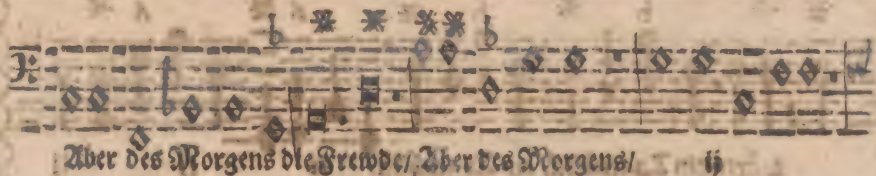 Aber des Morgens die Frewde/ Aber des Morgens/ ij